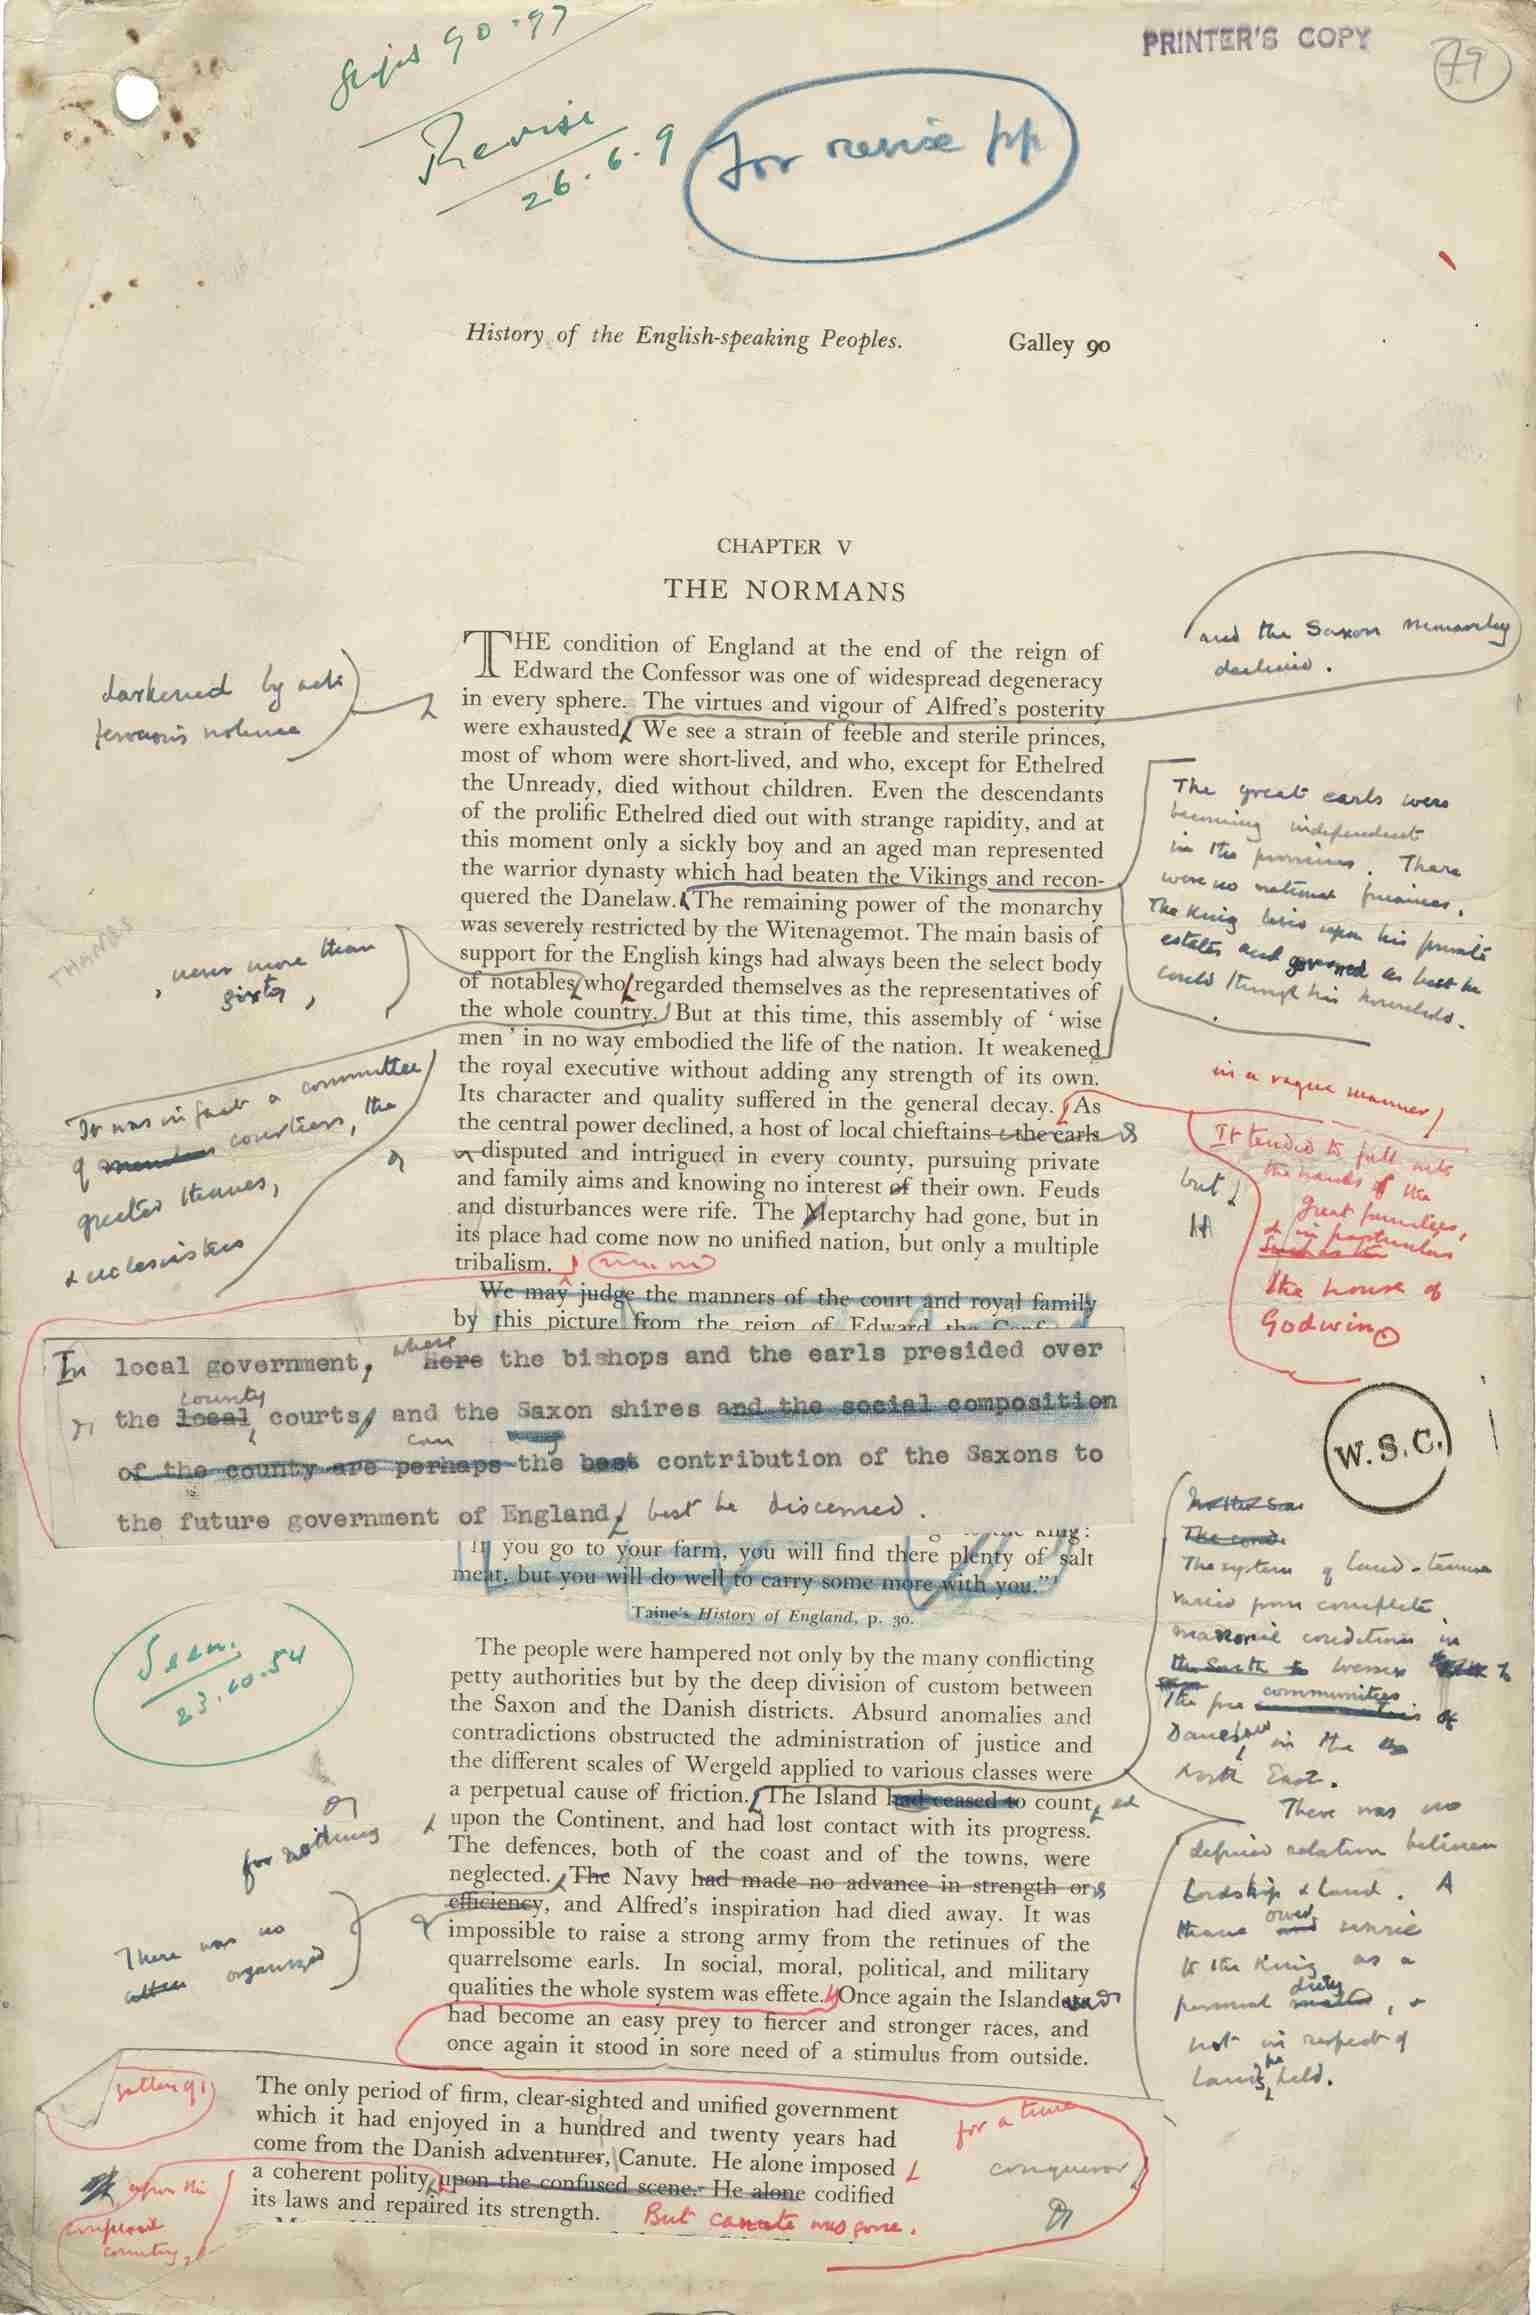 90-97
Revise
26.6.9
for revise pp
PRINTER'S COPY
79
History of the English-speaking Peoples. Galley 90
CHAPTER V
THE NORMANS
THE condition of England at the end of the reign of
Edward the Confessor was one of widespread degeneracy
in every sphere. The virtues and vigour of Alfred's posterity
were exhausted. We see a strain of feeble and sterile princes,
most of whom were short-lived, and who, except for Ethelred
the Unready, died without children. Even the descendants
of the prolific Ethelred died out with strange rapidity, and at
this moment only a sickly boy and an aged man represented
the warrior dynasty which had beaten the Vikings and recon-
quered the Danelaw. The remaining power of the monarchy
was severely restricted by the Witenagemot. The main basis of
support for the English kings had always been the select body
of notables who regarded themselves as the representatives of
the whole country. But at this time, this assembly of ' wise
men ' in no way embodied the life of the nation. It weakened
the royal executive without adding any strength of its own.
Its character and quality suffered in the general decay. As
the central power declined, a host of local chieftains—the earls
—disputed and intrigued in every county, pursuing private
and family aims and knowing no interest of their own. Feuds
and disturbances were rife. The Meptarchy had gone, but in
its place had come now no unified nation, but only a multiple
tribalism.
We may judge the manners of the court and royal family
by this picture from the reign of Edward the Conf
In local government, where Here the bishops and the earls presided over
county
the local courts, and the Saxon shires and the social composition
can
of the county are perhaps the best contribution of the Saxons to
the future government of England, best be discerned.
the king:
If you go to your farm, you will find there plenty of salt
meat, but you will do well to carry some more with you."'
Taine's History of England, p. 30.
The people were hampered not only by the many conflicting
petty authorities but by the deep division of custom between
the Saxon and the Danish districts. Absurd anomalies and
contradictions obstructed the administration of justice and
the different scales of Wergeld applied to various classes were
a perpetual cause of friction. The Island had ceased to count ed
upon the Continent, and had lost contact with its progress.
The defences, both of the coast and of the towns, were
neglected. The Navy had made no advance in strength or
efficiency, and Alfred's inspiration had died away. It was
impossible to raise a strong army from the retinues of the
quarrelsome earls. In social, moral, political, and military
qualities the whole system was effete. Once again the Island
had become an easy prey to fiercer and stronger races, and
once again it stood in sore need of a stimulus from outside.
The only period of firm, clear-sighted and unified government
which it had enjoyed in a hundred and twenty years had
come from the Danish adventurer, Canute. He alone imposed
a coherent polity upon the confused scene. He alone codified
its laws and repaired its strength. But Canute was gone.
darkened by acts
ferocious violence
THANDS
, never more than
sixty,
It was in fact a committee
of members courtiers, the
greater thanes,
& ecclesiastics
Seen.
23.10.54
for nothing
There was no
organized
galley 91
upon the
confused
country,
and the Saxon monarchy
declined.
The great earls were
becoming independent
in the provinces. There
were no national finances.
The King lived upon his private
estates and governed as best he
could through his household.
in a vague manner
It tended to fall into
the hands of the
great families,
& in particular
the house of
Godwin
but
W.S.C.
The system of land-tenure
varied from complete
manorial conditions in
the South to Wessex to
The free communities of
Danelaw in the
North East.
There was no
defined relation between
Lordship & Land. A
thane owed service
to the King as a
personal duty, &
not in respect of
lands he held.
for a time
conqueror